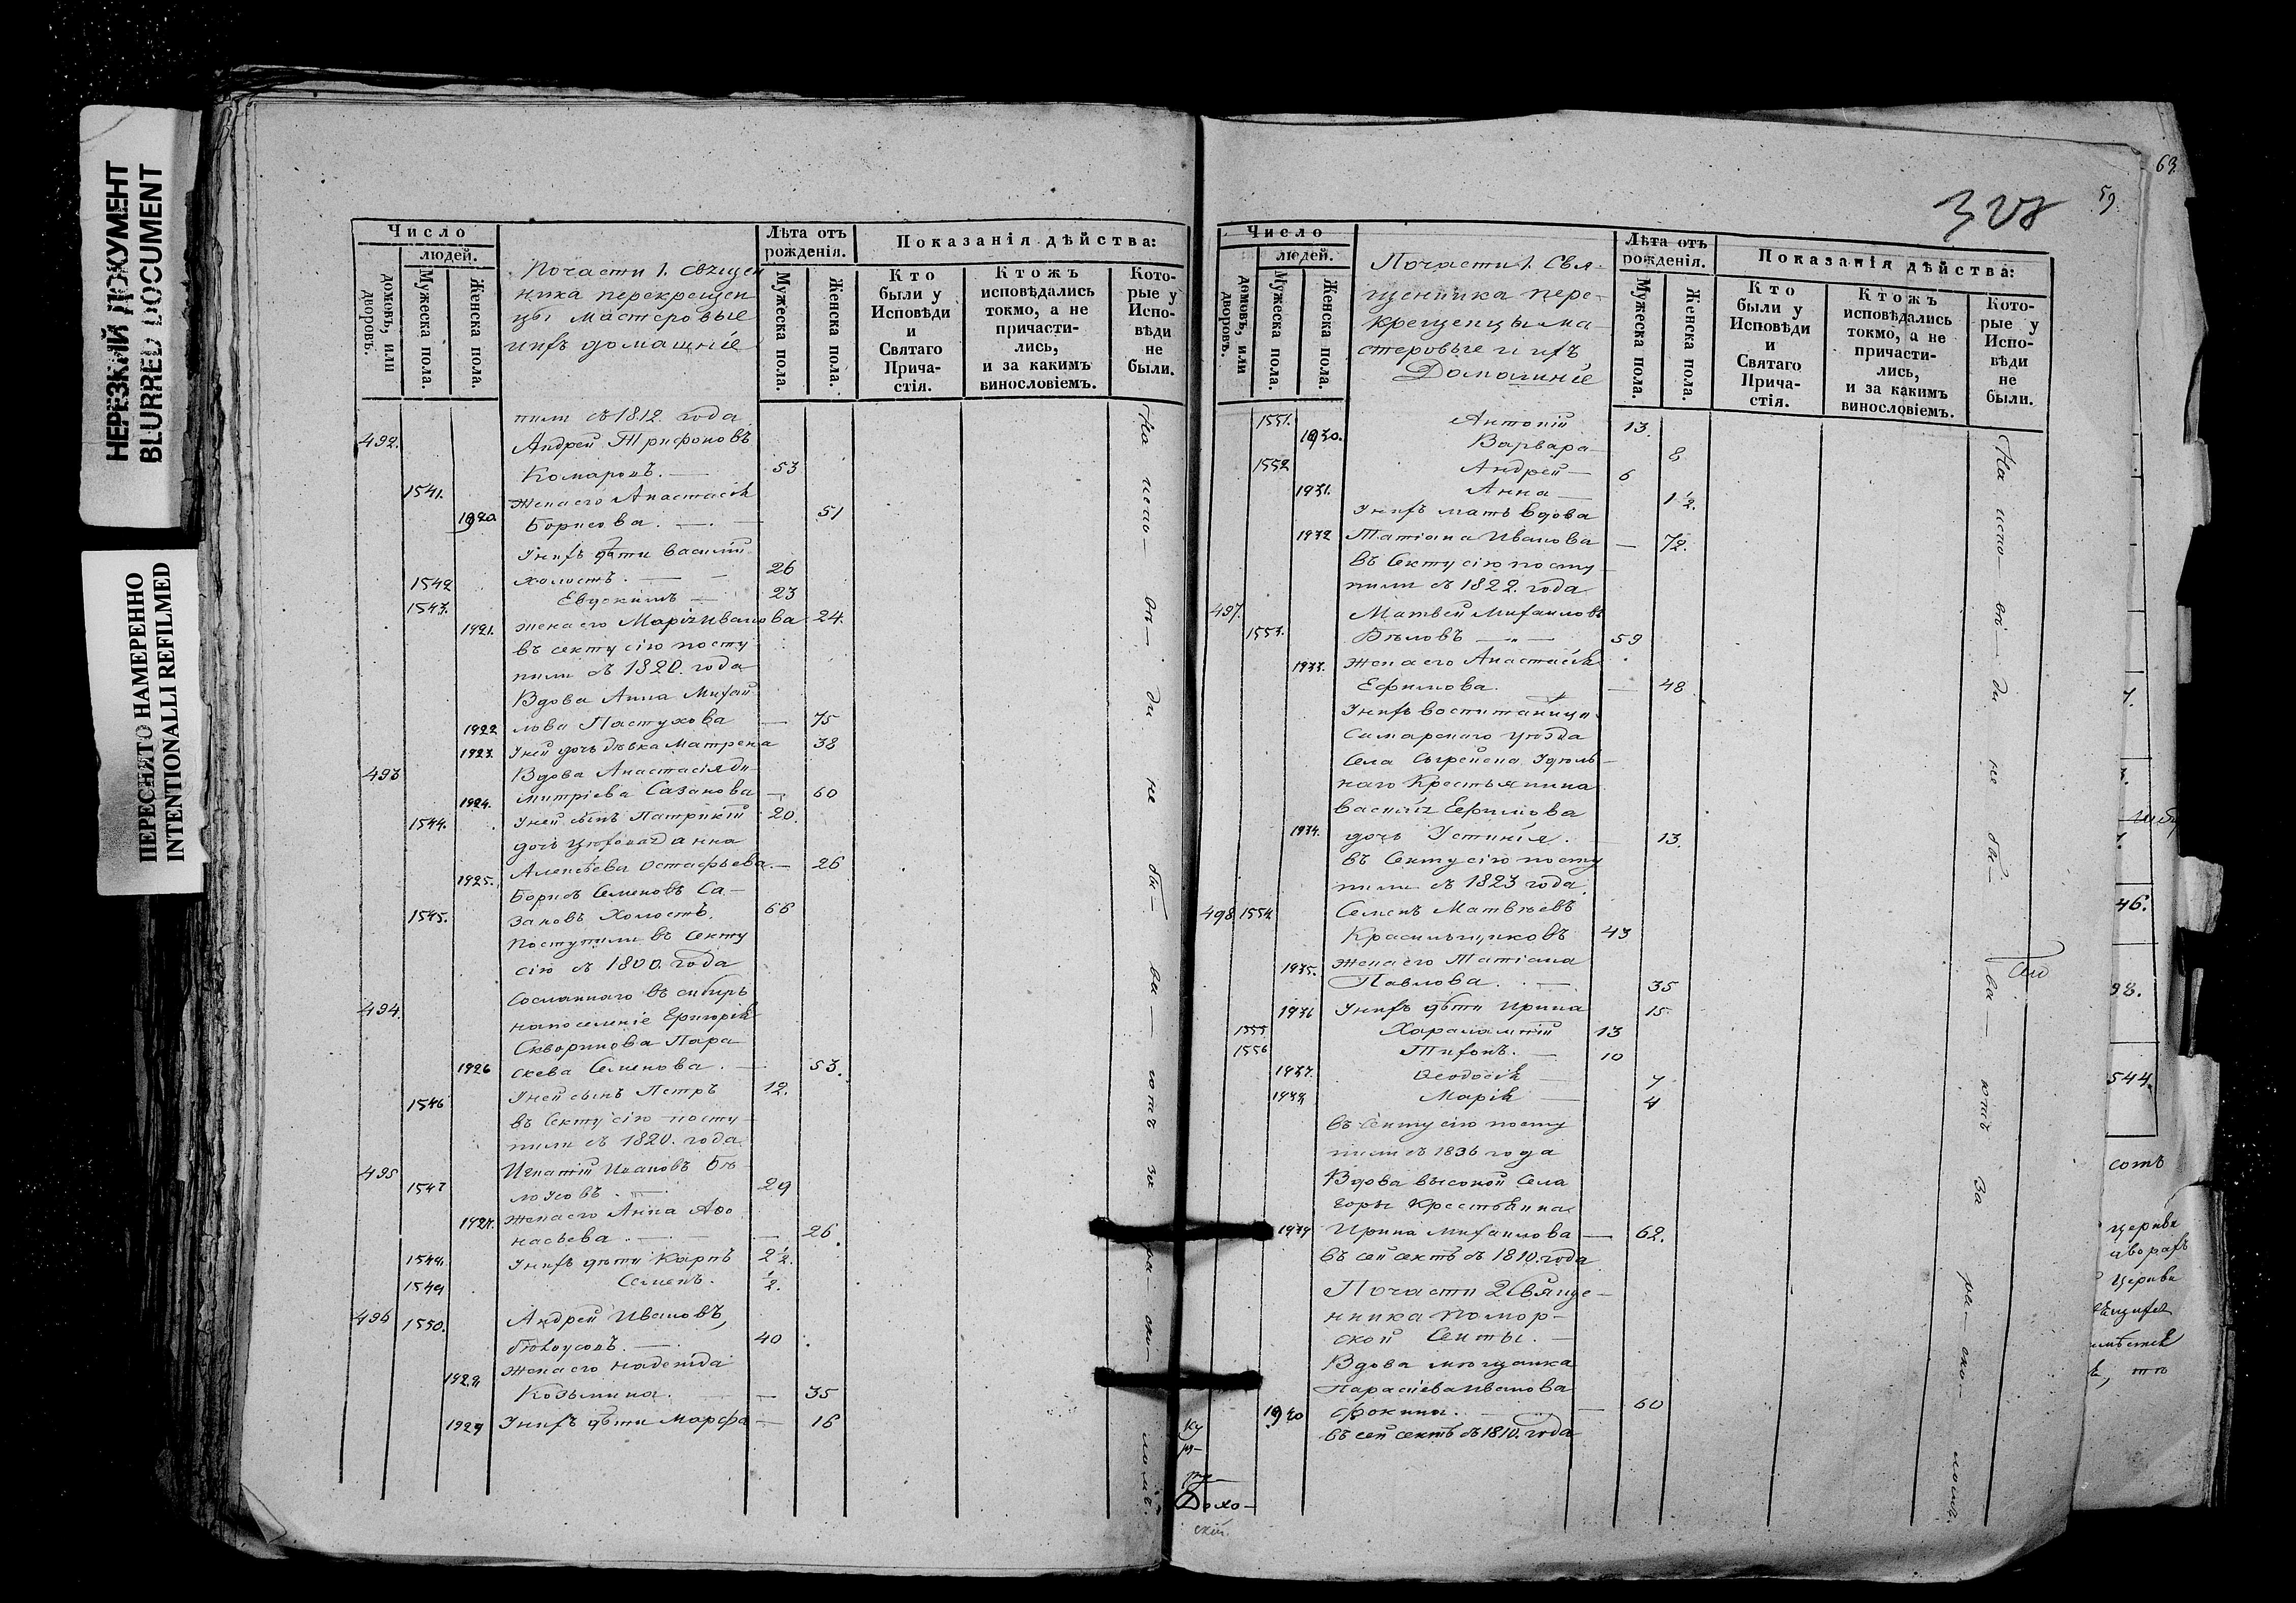 НЕРЕЗКИЙ ДОКУМЕНТ
BLURRED DOCUMENT
ПЕРЕСНЯТО НАМЕРЕННО
INTENTIONALLI REFILMED
Число
людей.
домовъ, или дворовъ.
Мужеска пола.
Женска пола.
Почасти 1. Священ
ника перекрещен
цы мастеровые
иихъ домашніе
Лѣта отъ рожденія.
Мужеска пола.
Женска пола.
Показанія дѣйства:
Кто были у Исповѣди и Святаго Прича-стія.
Ктожъ исповѣдались токмо, а не причасти-лись, и за какимъ винословіемъ.
Кото-рые у Испо-вѣди не были.
пили съ 1812. года
492. Андрей Трифоновъ
1541. Комаровъ. — 53
Жена его Анастасія
1920. Борисова. — 51
Унихъ дѣти Василій
1542 холостъ. — 26
1543. Евдокимъ — 23
1921. жена его Марія Иванова 24.
въ секту сію посту
пили съ 1820. года
Вдова Анна Михай
1922 лова Пастухова — 75
1923. Уней дочь дѣвка Матрена 38
493 Вдова Анастасія Ди-
1924. митріева Сазанова — 60
1544. Уней сынъ Патрикій 20.
Алексѣева Остафьева — 26
1925.
Борисъ Семеновъ Са-
1545. зановъ Холостъ. 66
Поступили въ Секту
сію съ 1800. года
494. Сосланнаго въ сибирь
напоселеніе Григорія
Скворцова Пара
1926 скева Семенова. — 53.
1546 Уней сынъ Петръ 12.
въ Секту сію посту-
пили съ 1820. года
495 Игнатій Ивановъ Бѣ-
1547 лоусовъ. — 29
1927. Жена его Анна Афо
насьева. — 26.
1548. Унихъ дѣти Карпъ 2 1/2.
1549 Семенъ. 1/2.
496 1550. Андрей Ивановъ
Бѣлоусовъ. — 40
1928 Жена его Надежда
Козьмина. — 35
1929 Унихъ дѣти Марфа — 16
На испо-вѣ-ди не бы-ва-ютъ за рас-ко-ломъ.
328
59
63
Число
людей.
домовъ, или дворовъ.
Мужеска пола.
Женска пола.
Почасти 1. Свя-
щенника пере-
крещенцы ма-
стеровые и ихъ
Домашніе
Лѣта отъ рожденія.
Мужеска пола.
Женска пола.
Показанія дѣйства:
Кто были у Исповѣди и Святаго Прича-стія.
Ктожъ исповѣдались токмо, а не причасти-лись, и за какимъ винословіемъ.
Кото-рые у Испо-вѣди не были.
1551. Антоній 13.
1930. Варвара 8
1552 Андрей — 6
1931. Анна — 1 1/2.
Унихъ мать вдова
1932 Татіана Иванова — 72.
въ Секту сію посту
пили съ 1822. года
497. Матвей Михайловъ
1553. Бѣловъ — 59
1933. Жена его Анастасія
Ефимова. — 48
Унихъ воспитаница
Самарскаго уѣзда
Села Сырейска Удѣль-
наго Крестьянина
Василія Ефимова
1934. дочь Устинія. 13.
въ Секту сію посту
пили съ 1823 года.
498 1554 Семенъ Матвѣевъ
Красильщиковъ 43
1935. Жена его Татіана
Павлова. — 35
1936 Унихъ дѣти Ирина 15.
1555 Харалампій 13
1556 Тифонъ. — 10
1937. Феодосія — 7
1938 Марія — 4
въ Секту сію посту
пили съ 1836 года
Вдова высокой Села
горы Крестьянка
1939 Ирина Михайлова — 62.
въ сей сектѣ съ 1810. года
Почасти 2 Священ-
ника Помор-
ской Секты. —
Вдова мѣщанка
Параскева Иванова
1940 Фокина. — 60
въ сей сектѣ съ 1810. года
На испо-вѣ-ди не бы-ва-ютъ За рас-ко-ломъ.
46.
98.
544.
сотъ
церкви
дворахъ
Церкви